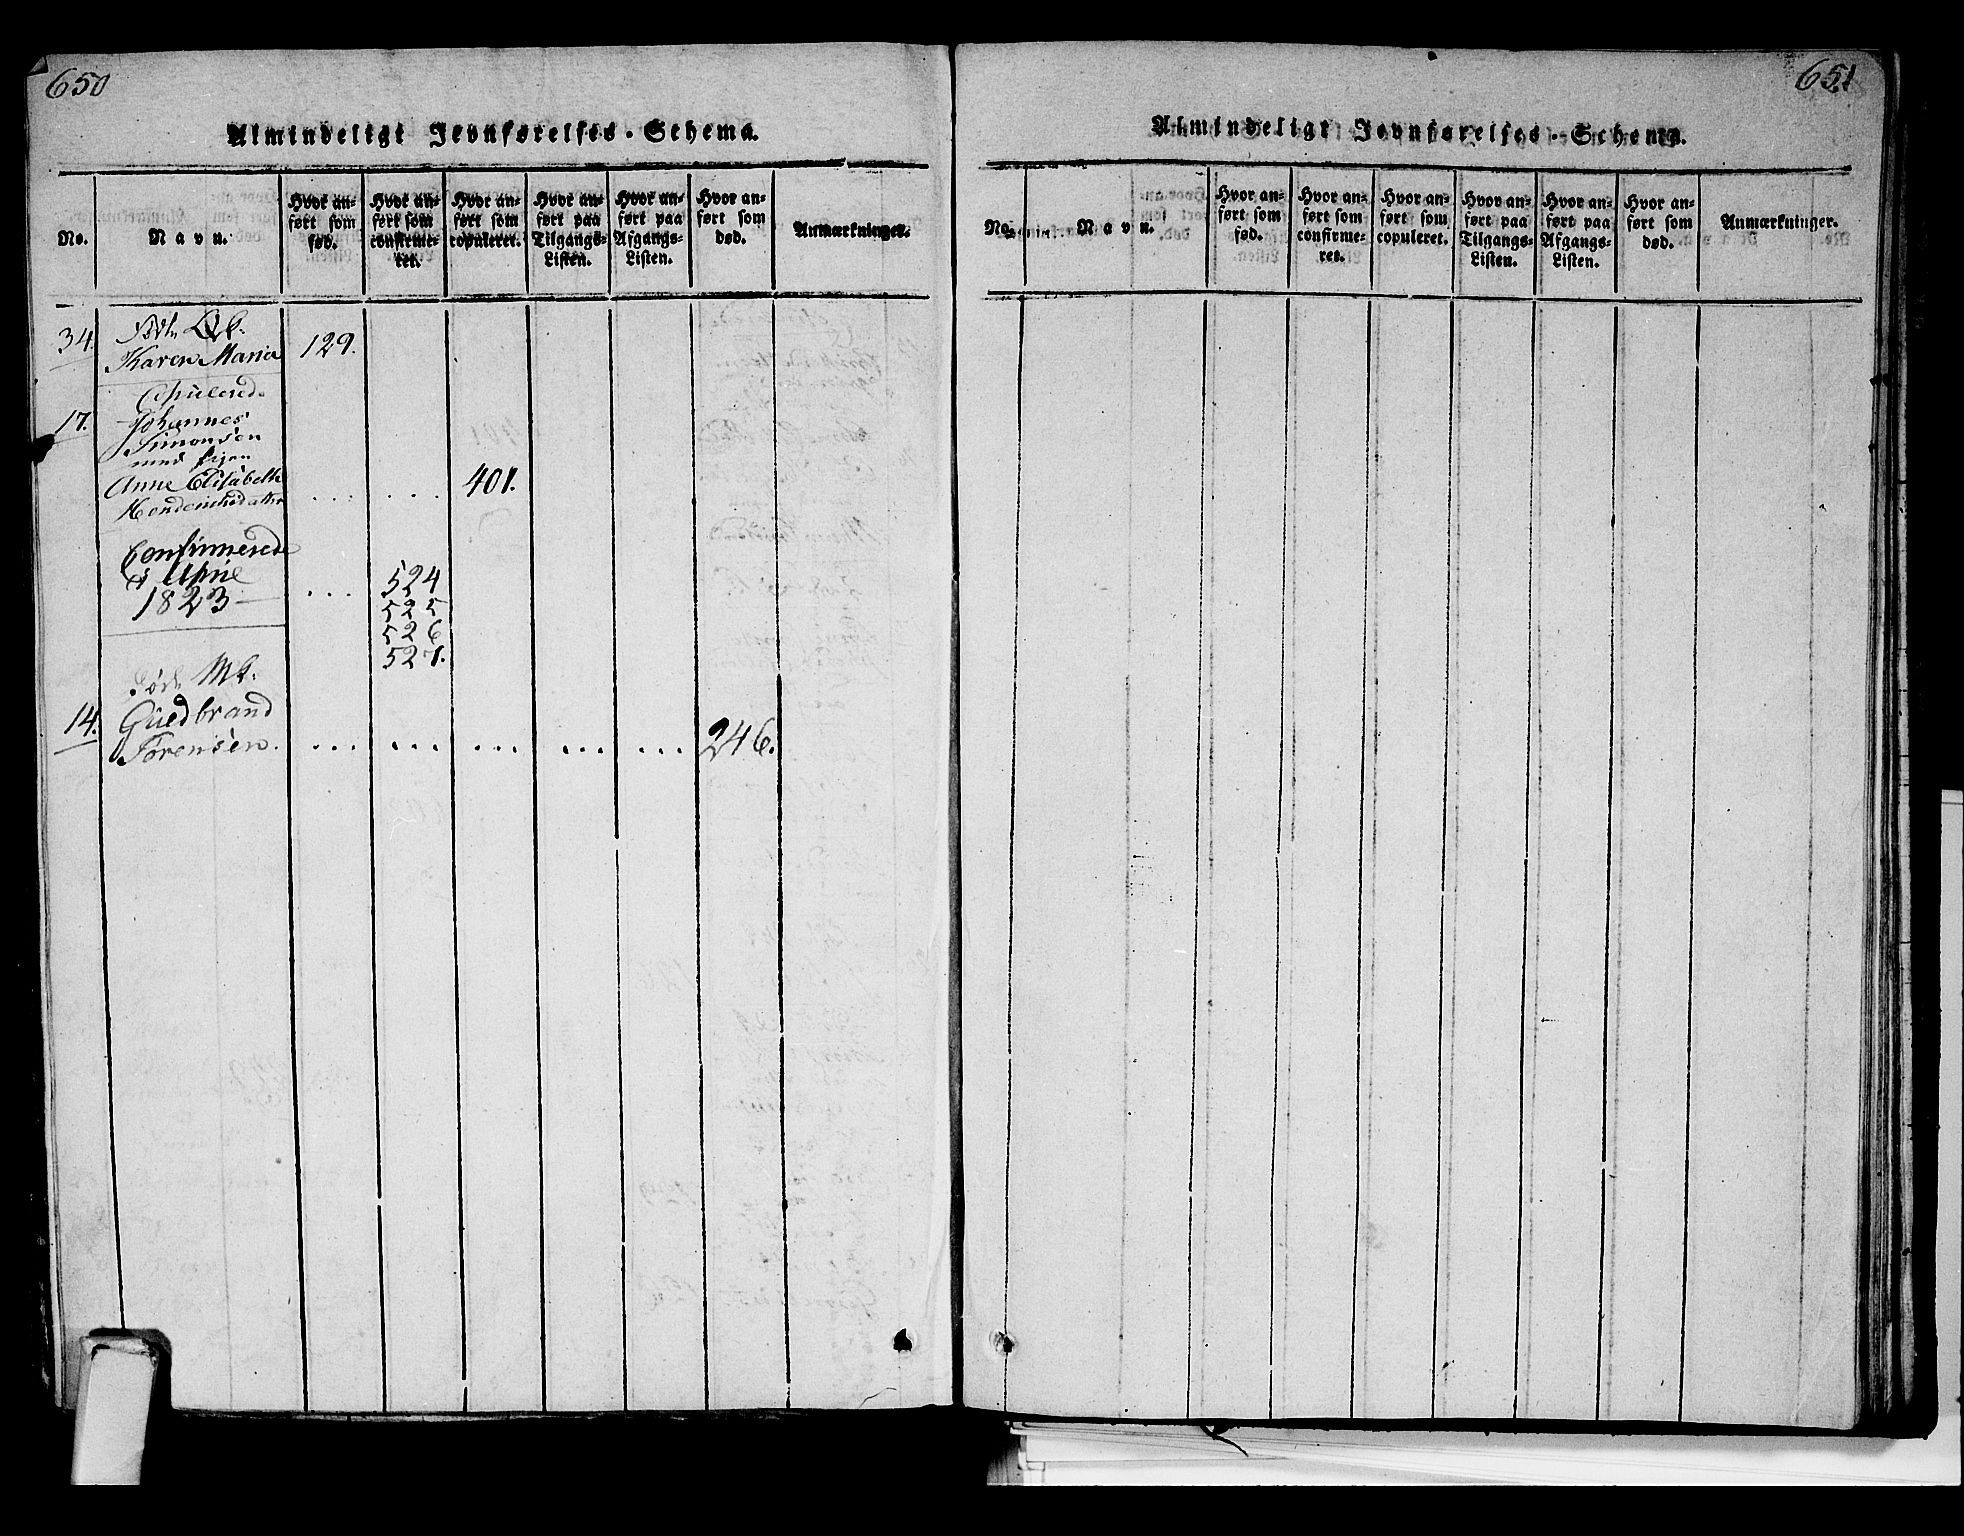 650
Almindeligt Jevnførelses-Schema.
No.
Navn.
Hvor an-
ført som
fød.
Hvor an-
ført som
confirme-
ret.
Hvor an-
ført som
copuleret.
Hvor an-
ført paa
Tilgangs-
Listen.
Hvor an-
ført paa
Afgangs-
Listen.
Hvor an-
ført som
død.
Anmærkninger.
34.
Karen Maria 129.
17.
Johannes
Simonsen
med pigen
Anne Elisabeth ... ... 401.
Confirmerede
i
1823 ... 524
525
526
527.
Mk.
14. Guldbrand
Sørensen. ... ... ... ... ... 246.
651
Almindeligt Jevnførelses-Schema.
No.
Navn.
Hvor an-
ført som
fød.
Hvor an-
ført som
confirme-
res.
Hvor an-
ført som
copuleret.
Hvor an-
ført paa
Tilgangs-
Listen.
Hvor an-
ført paa
Afgangs-
Listen.
Hvor an-
ført som
død.
Anmærkninger.